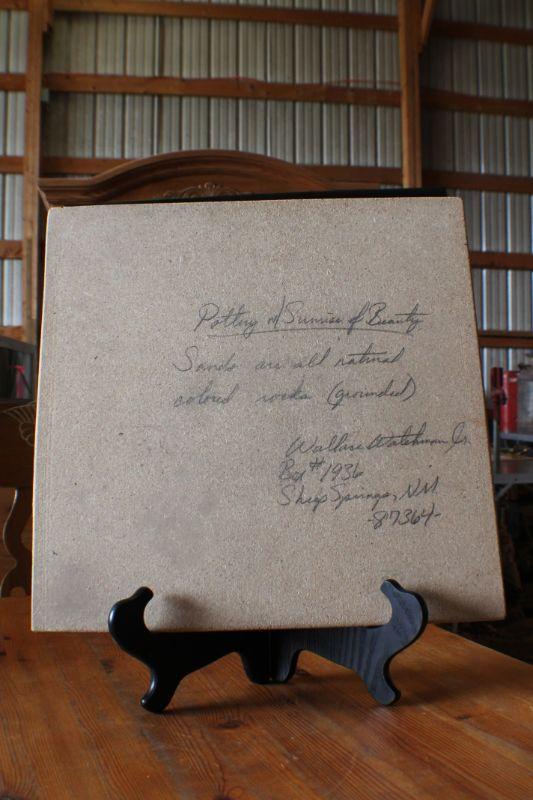 Pottery w/ Sunrise of Beauty
Sands are all natural
colored rocks (grounded)
Wallace Watchman Jr.
Box # 1936
Sheep Springs, NM
-87364-